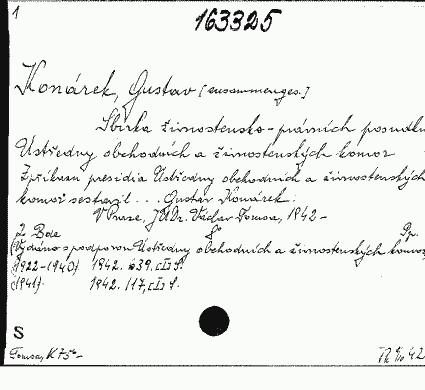 1
163325
Konárek, Gustav [zusammenges.]
Sbírka živnostensko-právních posudků
Ústředny obchodních a živnostenských komor
Z příkazu presidia Ústředny obchodních a živnostenských
komor sestavil ... Gustav Konárek.
V Praze, JUDr. Václav Tomsa, 1942 -
2 Bde 8° Pp.
(Vydáno s podporou Ústředny obchodních a živnostenských komor)
(1922-1940) 1942. 639, S.
(1941) 1942. 117, S.
S
Tomsa, K 75-
42